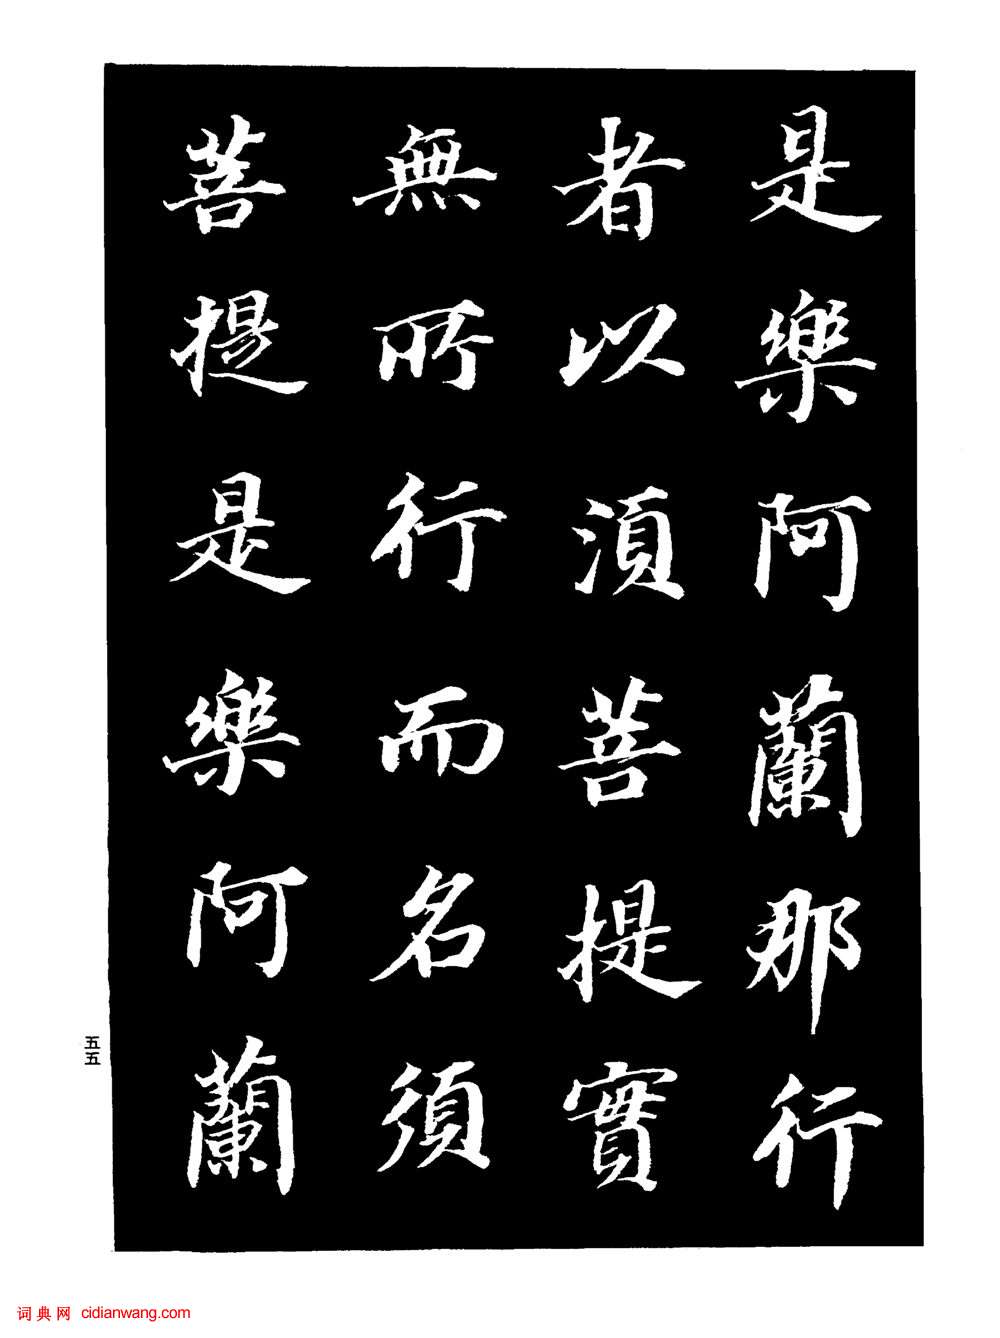 是樂阿蘭那行
者以湏菩提實
無所行而名須
菩提是樂阿蘭
五五
词典网 cidianwang.com